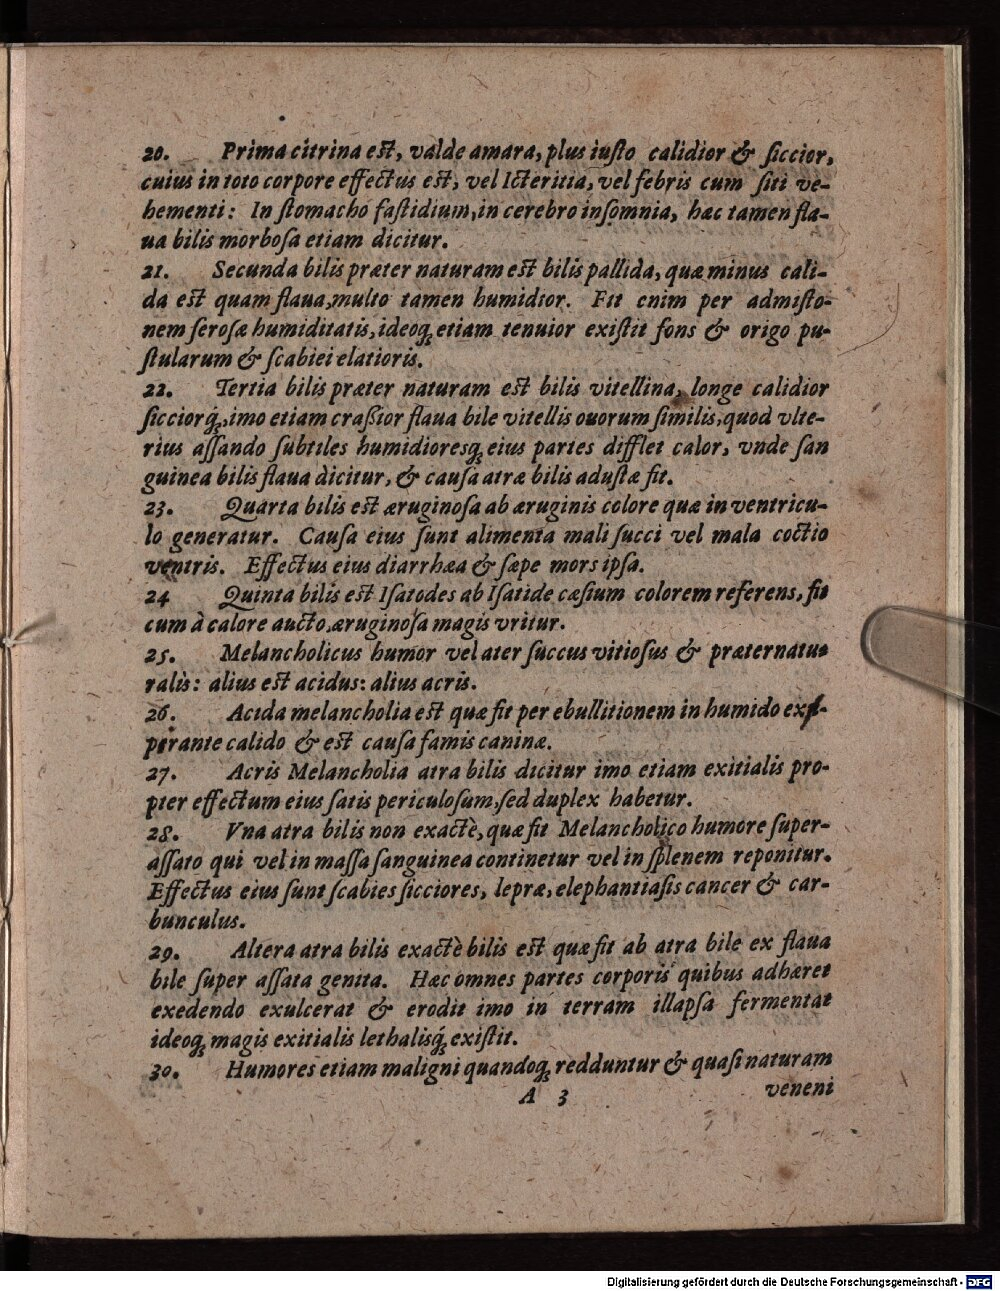 20. Prima citrina est, valde amara, plus iuſto calidior & ſiccior,
cuius in toto corpore effectus est, vel Icteritia, vel febris cum ſiti ve-
hementi: In ſtomacho faſtidium, in cerebro inſomnia, hæc tamen fla-
ua bilis morboſa etiam dicitur.
21. Secunda bilis præter naturam est bilis pallida, quæ minus cali-
da est quam flaua, multo tamen humidior. Fit enim per admiſtio-
nem ſeroſæ humiditatis, ideoq́; etiam tenuior exiſtit fons & origo pu-
ſtularum & ſcabiei elatioris.
22. Tertia bilis præter naturam est bilis vitellina, longe calidior
ſicciorq́;, imo etiam craßior flaua bile vitellis ouorum ſimilis, quod vlte-
rius aſſando ſubtiles humidioresq́; eius partes difflet calor, vnde ſan
guinea bilis flaua dicitur, & cauſa atræ bilis aduſtæ fit.
23. Quarta bilis est æruginoſa ab æruginis colore quæ in ventricu-
lo generatur. Cauſa eius ſunt alimenta mali ſucci vel mala coctio
ventris. Effectus eius diarrhæa & ſæpe mors ipſa.
24 Quinta bilis est Iſatodes ab Iſatide cæſium colorem referens, fit
cum à calore aucto, æruginoſa magis vritur.
25. Melancholicus humor vel ater ſuccus vitioſus & præternatu-
ralis: alius est acidus: alius acris.
26. Acida melancholia est quæ fit per ebullitionem in humido exu-
perante calido & est cauſa famis caninæ.
27. Acris Melancholia atra bilis dicitur imo etiam exitialis pro-
pter effectum eius ſatis periculoſum, ſed duplex habetur.
28. Vna atra bilis non exactè, quæ fit Melancholico humore ſuper-
aſſato qui vel in maſſa ſanguinea continetur vel in ſplenem reponitur.
Effectus eius ſunt ſcabies ſicciores, lepræ, elephantiaſis cancer & car-
bunculus.
29. Altera atra bilis exactè bilis est quæ fit ab atra bile ex flaua
bile ſuper aſſata genita. Hæc omnes partes corporis quibus adhæret
exedendo exulcerat & erodit imo in terram illapſa fermentat
ideoq́; magis exitialis lethalisq́; exiſtit.
30. Humores etiam maligni quandoq́; redduntur & quaſi naturam
A 3 veneni
Digitalisierung gefördert durch die Deutsche Forschungsgemeinschaft - DFG